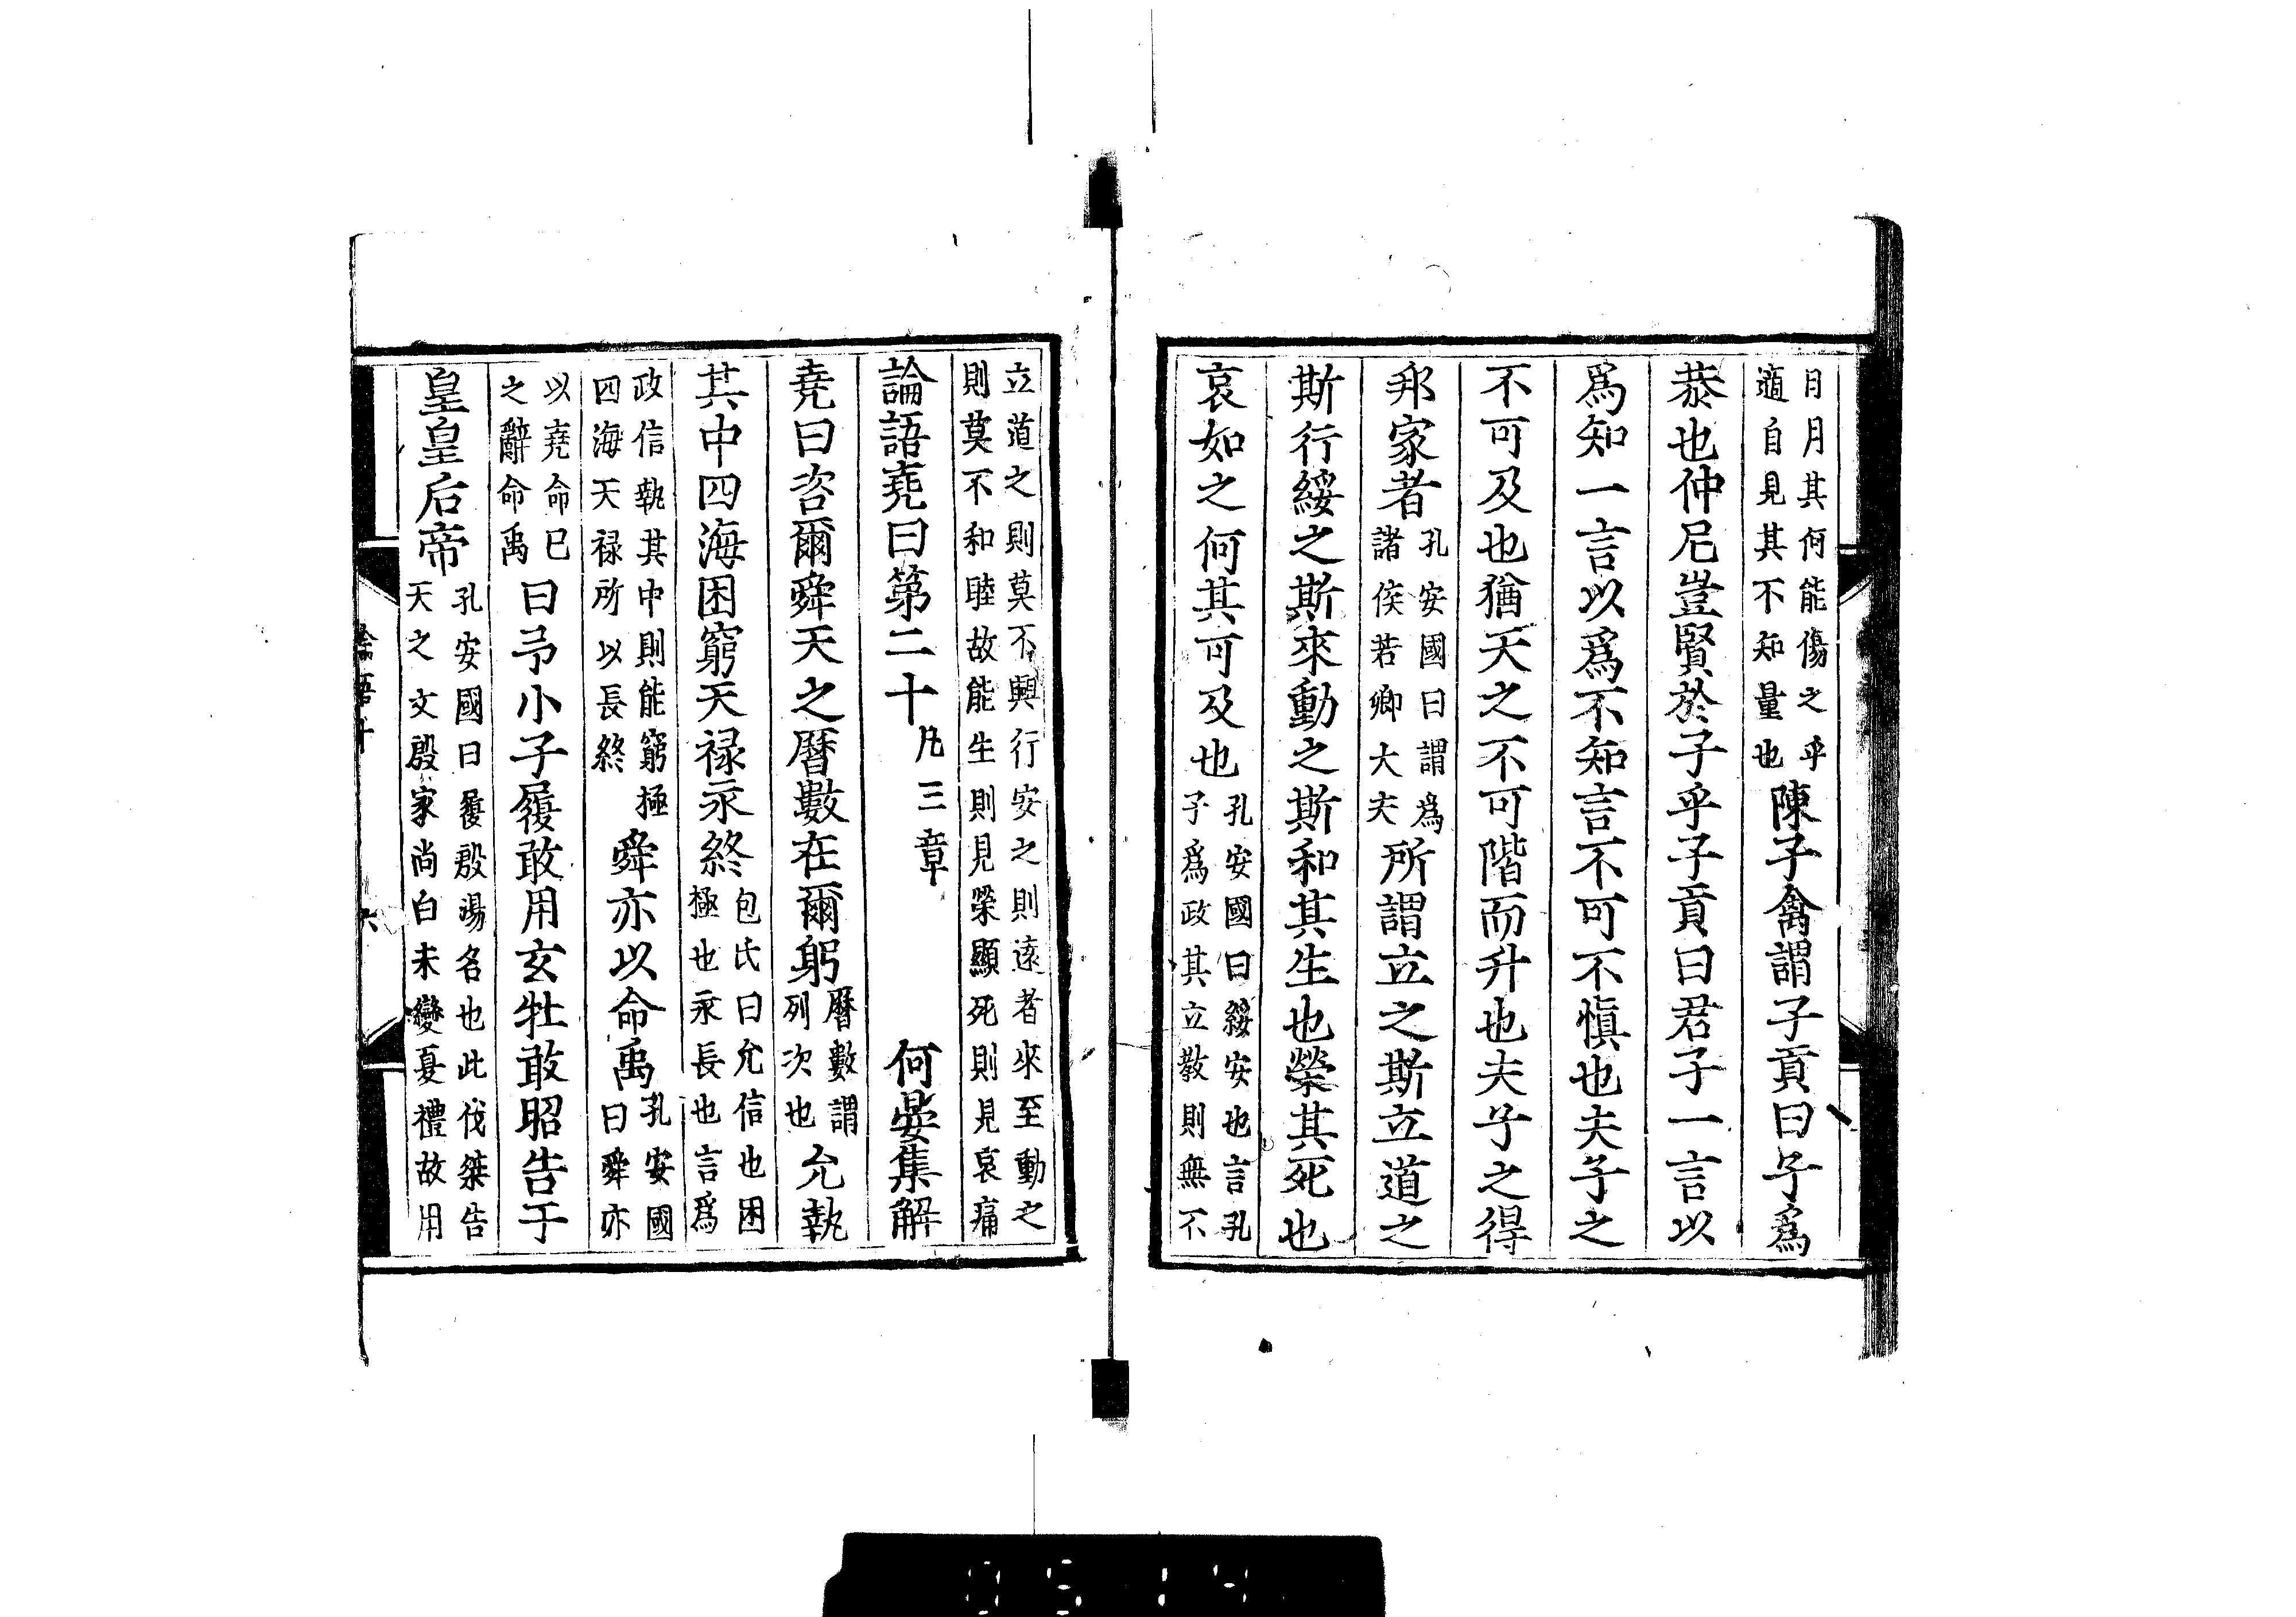 日月其何能傷之乎
適自見其不知量也陳子禽謂子貢曰子爲
恭也仲尼豈賢於子乎子貢曰君子一言以
爲知一言以爲不知言不可不愼也夫子之
不可及也猶天之不可階而升也夫子之得
邦家者孔安國曰謂爲
諸侯若卿大夫所謂立之斯立道之
斯行綏之斯來動之斯和其生也榮其死也
哀如之何其可及也孔安國曰綏安也言孔
子爲政其立教則無不
立道之則莫不興行安之則遠者來至動之
則莫不和睦故能生則見榮顯死則見哀痛
論語堯曰第二十凡三章 何晏集解
堯曰咨爾舜天之曆數在爾躬曆數謂
列次也允執
其中四海困窮天禄永終包氏曰允信也困
極也永長也言爲
政信執其中則能窮極
四海天禄所以長終舜亦以命禹孔安國
曰舜亦
以堯命命已
之辭命禹曰予小子履敢用玄牡敢昭告于
皇皇后帝孔安國曰履殷湯名也此伐桀告
天之文殷家尚白未變夏禮故用
0514